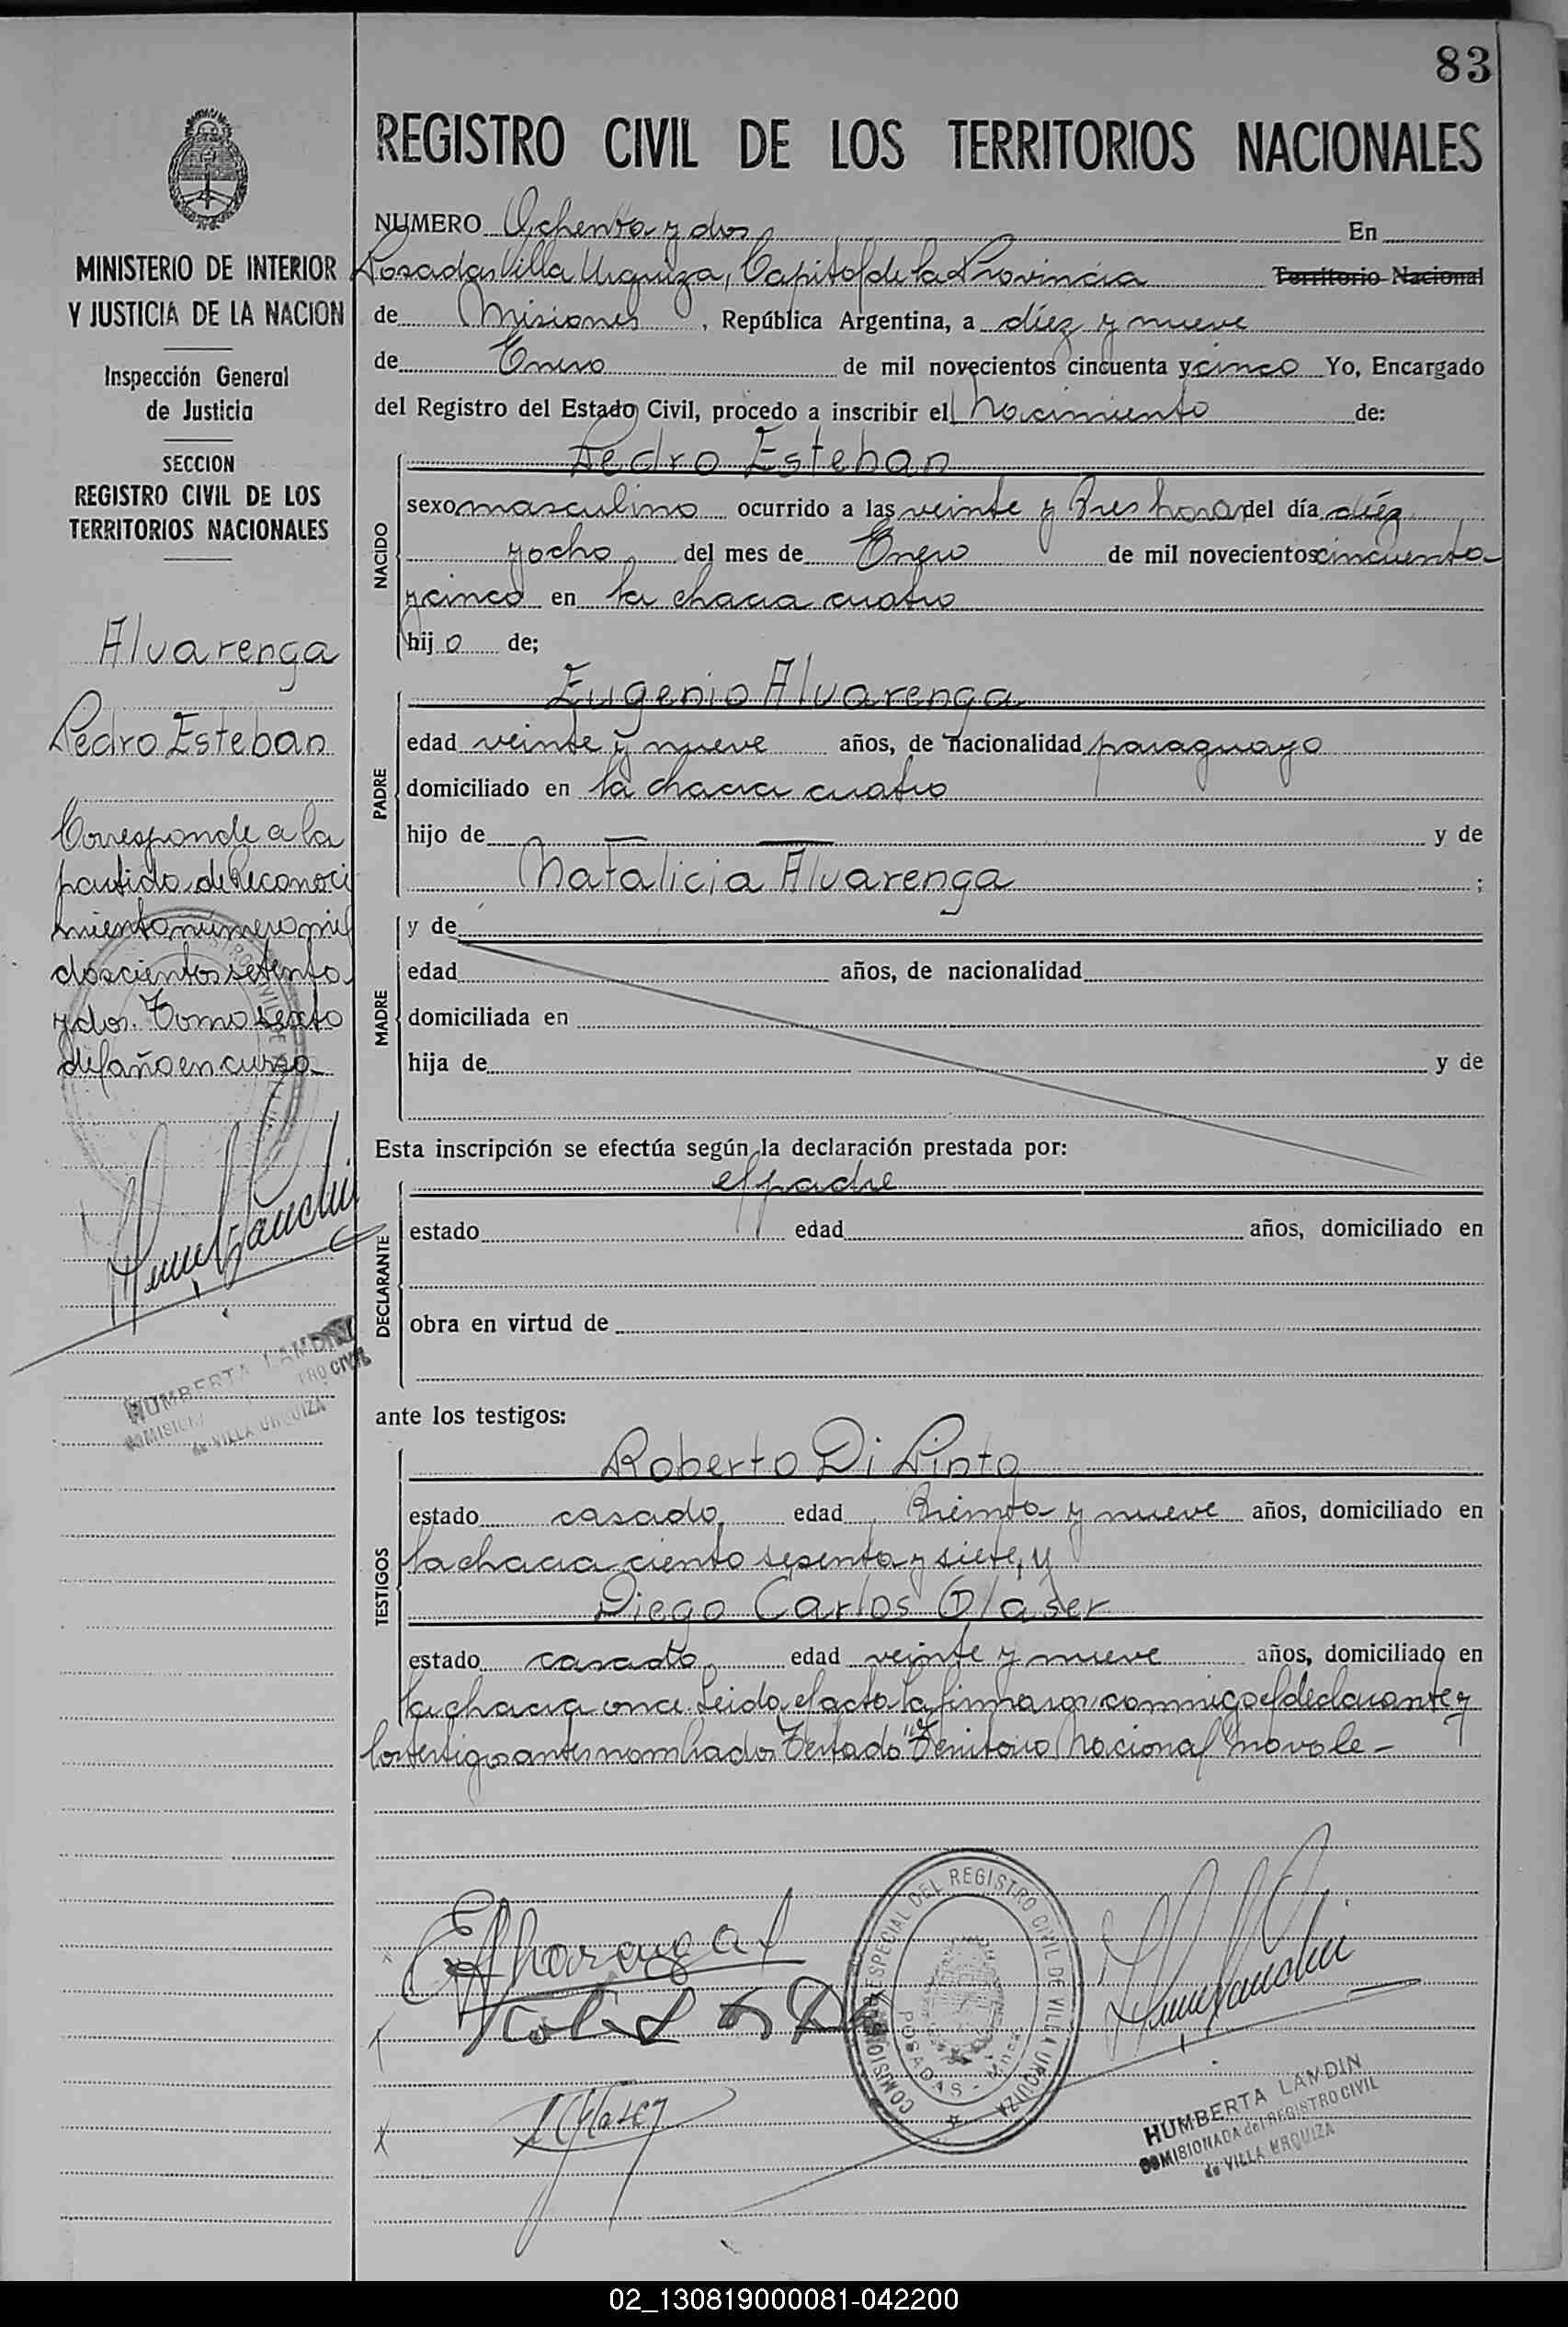 83
REGISTRO CIVIL DE LOS TERRITORIOS NACIONALES
MINISTERIO DE INTERIOR
Y JUSTICIA DE LA NACION
Inspección General
de Justicia
SECCION
REGISTRO CIVIL DE LOS
TERRITORIOS NACIONALES
Alvarenga
Pedro Esteban
Corresponde a la
partida de Reconoci
miento número mil
doscientos setenta
y dos. Tomo sexto
del año en curso
HUMBERTA LANDIN
de VILLA URQUIZA
NUMERO Ochenta y dos En
Posadas Villa Urquiza, Capital de la Provincia Territorio Nacional
de Misiones, República Argentina, a diez y nueve
de Enero de mil novecientos cincuenta y cinco Yo, Encargado
del Registro del Estado Civil, procedo a inscribir el Nacimiento de:
NACIDO
Pedro Esteban
sexo masculino ocurrido a las veinte y tres horas del día diéz
y ocho del mes de Enero de mil novecientos cincuenta
y cinco en la chacra cuatro
hijo de;
PADRE
Eugenio Alvarenga
edad veinte y nueve años, de nacionalidad paraguayo
domiciliado en la chacra cuatro
hijo de — — y de
Natalicia Alvarenga ;
MADRE
y de
edad años, de nacionalidad
domiciliada en
hija de y de
Esta inscripción se efectúa según la declaración prestada por:
DECLARANTE
el padre
estado edad años, domiciliado en
obra en virtud de
ante los testigos:
TESTIGOS
Roberto Di Pinto
estado casado, edad treinta y nueve años, domiciliado en
la chacra ciento sesenta y siete, y
Diego Carlos Glaser
estado casado, edad veinte y nueve años, domiciliado en
la chacra once. Leida el acta la firmaron conmigo el declarante y
los testigos antes nombrados Testado "Territorio Nacional" no vale -
EAlvarenga
COMISION ESPECIAL DEL REGISTRO CIVIL DE VILLA URQUIZA
POSADAS - Mnes
HUMBERTA LANDIN
COMISIONADA del REGISTRO CIVIL
de VILLA URQUIZA
02_130819000081-042200